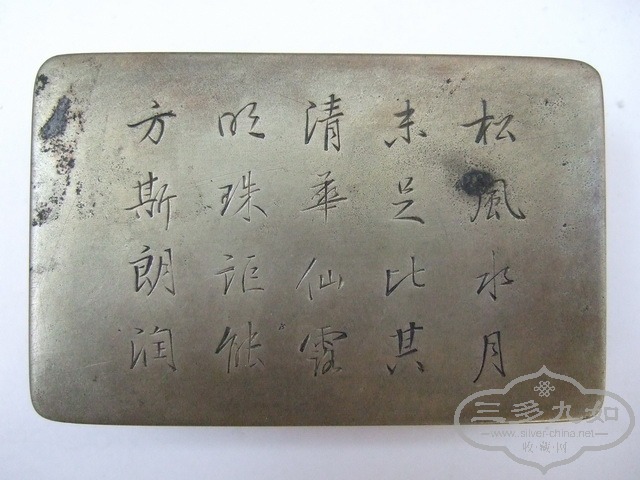 松風水月
未足比其
清華仙露
明珠詎能
方斯朗润
三多九如
www.silver-china.net
收·藏·网